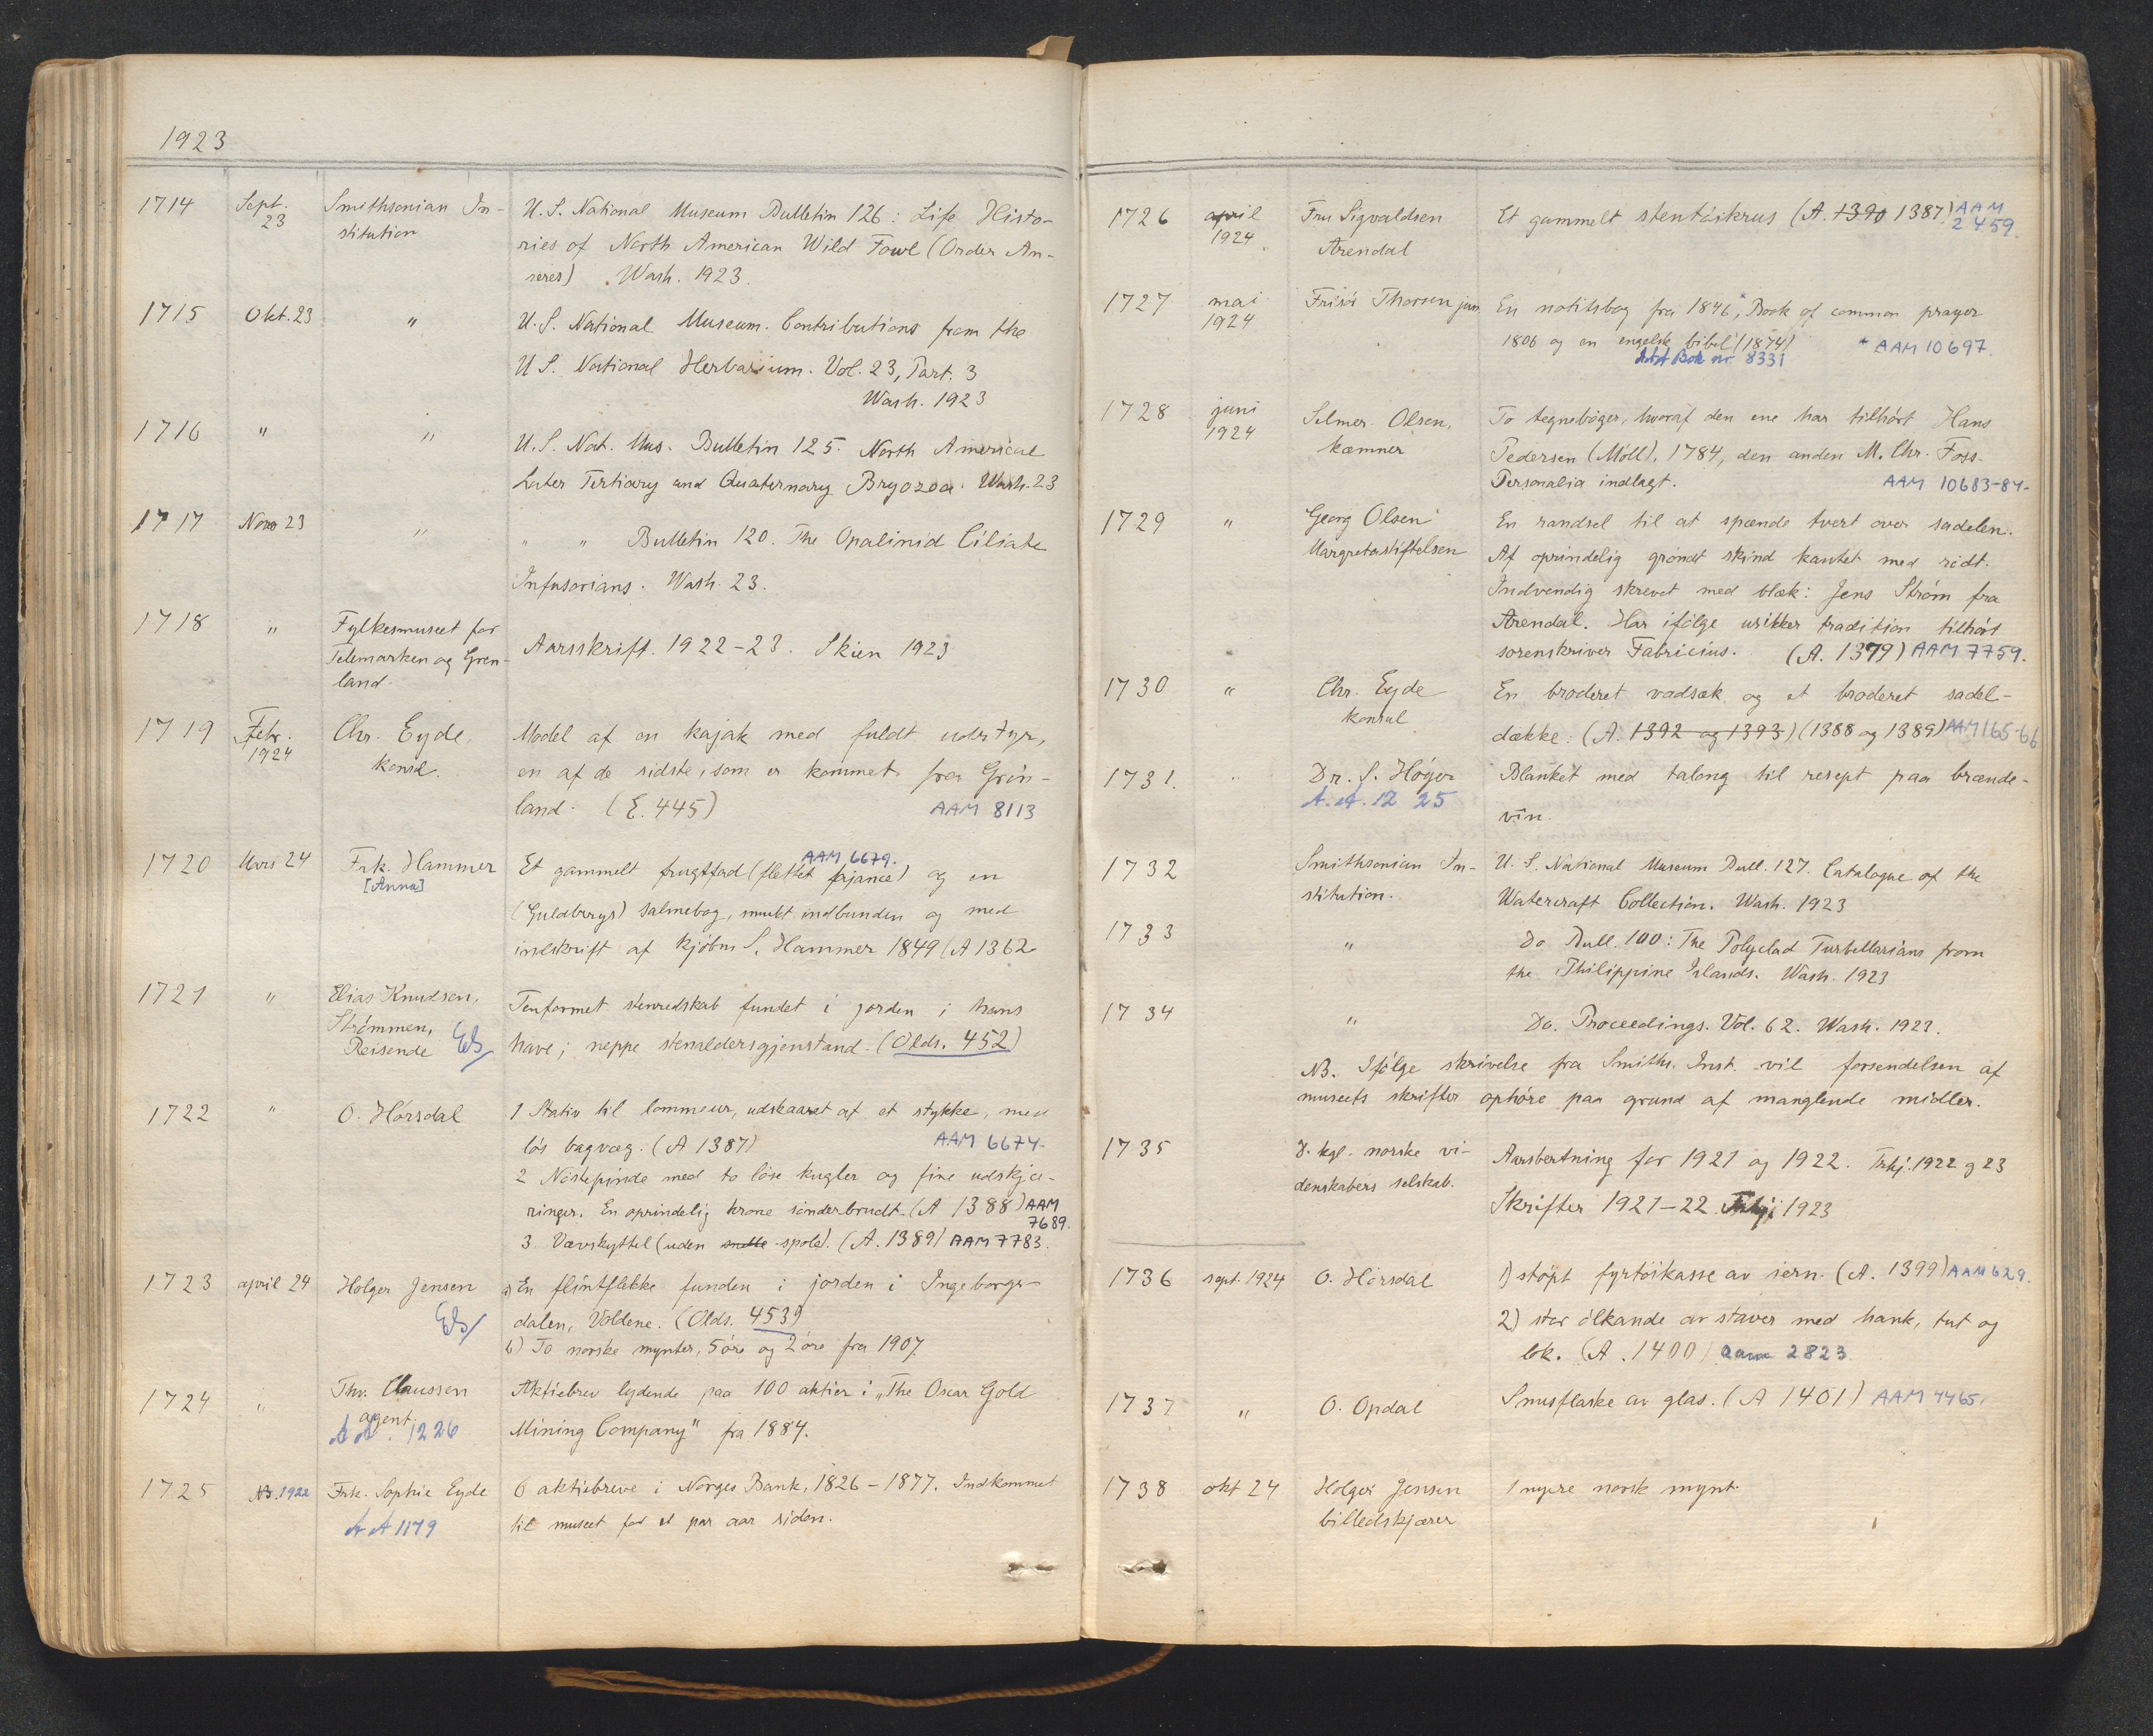 1923
1714 Sept. 23 Smithsonian In- U.S. National Museum Bulletin 126: Life Histo-
stitution ries of North American Wild Fowl (Order An-
seres) Wash. 1923.
1715 Okt. 23 " U.S. National Museum. Contributions from the
U.S. National Herbarium. Vol. 23, Part. 3
Wash. 1923
1716 " " U.S. Nat. Mus. Bulletin 125. North American
Later Tertiary and Quaternary Bryozoa. Wash. 23
1717 Nov 23 " " " Bulletin 120. The Opalinid Ciliate
Infusorians. Wash. 23.
1718 " Fylkesmuseet for
Telemarken og Gren- Aarsskrift. 1922-23. Skien 1923
land.
1719 Febr. 1924 Chr. Eyde, Model af en kajak med fuldt udstyr,
konsul. en af de sidste, som er kommet fra Grön-
land. (E. 445) AAM 8113
1720 Mars 24 Frk. Hammer Et gammelt frugtfad (flettet fajance) og en
AAM 6679.
[Anna] (Guldbergs) salmebog, smukt indbunden og med
indskrift af kjøbm S. Hammer 1849 (A 1362
1721 " Elias Knudsen, Tenformet stenredskab fundet i jorden i hans
Strömmen, have; neppe stenaldersgjenstand. (Olds. 452)
Reisende
1722 " O. Hörsdal 1 Stativ til lommeur, udskaaret af et stykke, med
lös bagvæg. (A 1387) AAM 6674.
2 Nöstepinde med to löse kugler og fine udskjæ-
ringer. En oprindelig krone sönderbrudt. (A 1388) AAM 7689.
3. Vævskyttel (uden snelle spole). (A. 1389) AAM 7783.
1723 april 24 Holger Jensen a) En flintflekke funden i jorden i Ingeborgs-
dalen, Voldene. (Olds. 453)
b) To norske mynter, 5 öre og 2 öre fra 1907.
1724 " Thv. Claussen Aktiebrev lydende paa 100 aktier i "The Oscar Gold
agent. Mining Company" fra 1884.
AA. 1226
1725 NB. 1922 Frk. Sophie Eyde 6 aktiebreve i Norges Bank, 1826-1877. Indkommet
AA 1179 til museet for et par aar siden.
1726 april 1924 Fru Sigvaldsen Et gammelt stentöikrus (A. 1390 1387) AAM 2459.
Arendal
1727 mai 1924 Frisör Thorsen jun. En notitsbog fra 1846*, Book of common prayer
1806 og en engelsk bibel (1874) * AAM 10697.
AA Bok nr 8331
1728 juni 1924 Selmer Olsen, To tegneböger, hvoraf den ene har tilhört Hans
kæmner Pedersen (Möll), 1784, den anden M. Chr. Foss.
Personalia indlagt. AAM 10683-84.
1729 " Georg Olsen En randsel til at spænde tvert over sadelen.
Margretestiftelsen Af oprindelig grøndt skind kantet med rödt.
Indvendig skrevet med blæk: Jens Ström fra
Arendal. Har ifölge usikker tradition tilhört
sorenskriver Fabricius. (A. 1379) AAM 7759.
1730 " Chr. Eyde En broderet vadsæk og et broderet sadel-
konsul dække: (A. 1392 og 1393) (1388 og 1389) AAM 165-66
1731. " Dr. S. Höyer Blanket med talong til resept paa brænde-
A.A. 12 25 vin.
1732 Smithsonian In- U.S. National Museum Bull. 127. Catalogue of the
stitution. Watercraft Collection. Wash. 1923
1733 " Do Bull. 100: The Polyclad Turbellarians from
the Philippine Islands. Wash. 1923
1734 " Do. Proceedings. Vol. 62. Wash. 1923.
NB. Ifölge skrivelse fra Smiths. Inst. vil forsendelsen af
museets skrifter ophöre paa grund af manglende midler.
1735 D. kgl. norske vi- Aarsbertning for 1921 og 1922. Trhj. 1922 g 23
denskabers selskab. Skrifter 1921-22. Trhj 1923
1736 sept. 1924 O. Hörsdal 1) stöpt fyrtöikasse av jern. (A. 1399) AAM 629.
2) stor ölkande av staver med hank, tut og
lok. (A. 1400) aam 2823.
1737 " O. Opdal Snusflaske av glas. (A 1401) AAM 4465.
1738 okt 24 Holger Jensen 1 nyere norsk mynt.
billedskjærer